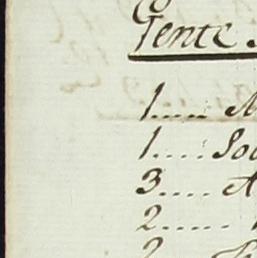 Gente.
1..... A
1.... So
3.... A
2......
2